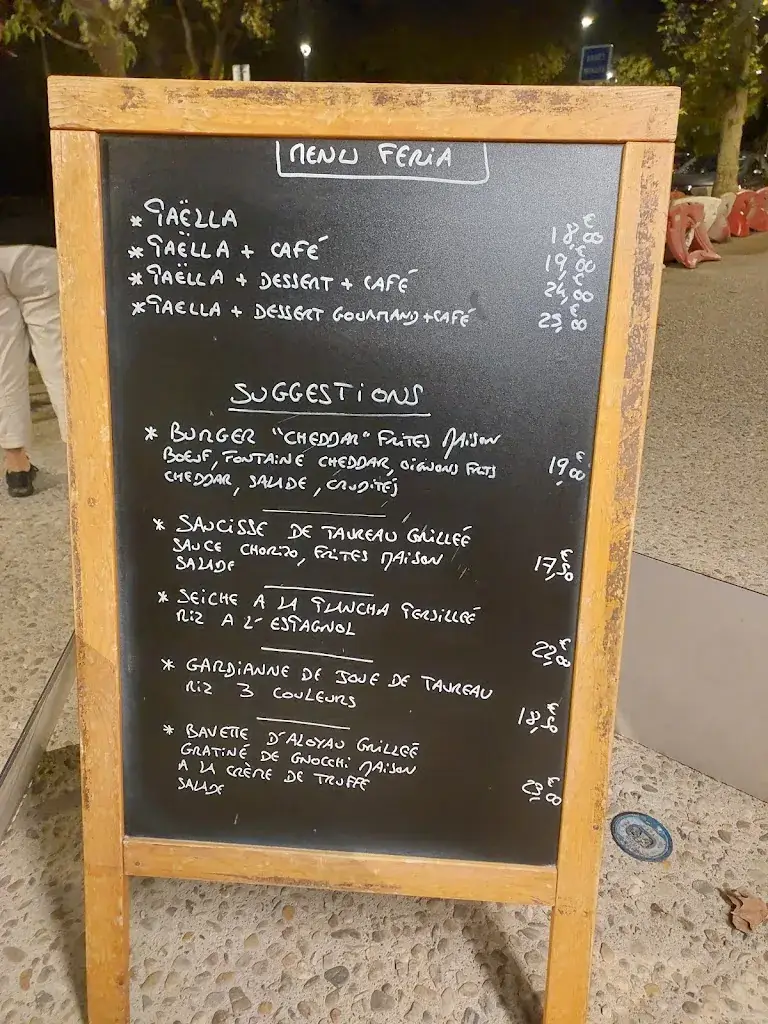 MENU FERIA
* PAËLLA 18,00€
* PAËLLA + CAFÉ 19,00€
* PAËLLA + DESSERT + CAFÉ 24,00€
* PAELLA + DESSERT GOURMAND + CAFÉ 25,00€
SUGGESTIONS
* BURGER "CHEDDAR" FRITES MAISON
BOEUF, FONTAINE CHEDDAR, OIGNONS FRITS 19,00€
CHEDDAR, SALADE, CRUDITÉS
* SAUCISSE DE TAUREAU GRILLEÉ
SAUCE CHORIZO, FRITES MAISON
SALADE 17,50€
* SEICHE A LA PLANCHA PERSILLEÉ
RIZ A L'ESPAGNOL
22,00€
* GARDIANNE DE JOUE DE TAUREAU
RIZ 3 COULEURS 18,50€
* BAVETTE D'ALOYAU GRILLEÉ
GRATINÉ DE GNOCCHI MAISON
A LA CRÈME DE TRUFFE
SALADE 23,00€